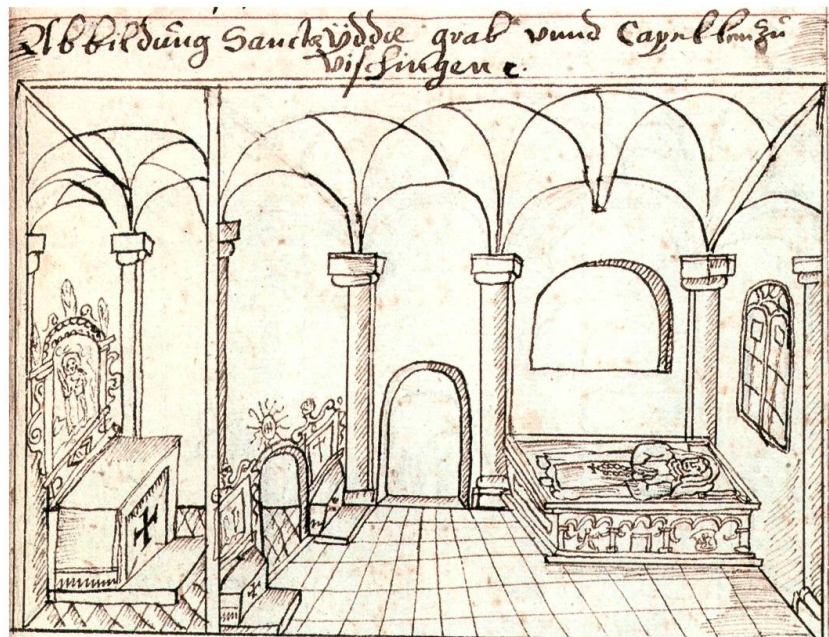 Abbildung Sanct Yddæ grab vnnd Capellen zu
vischingen